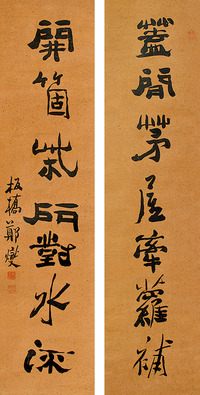 蓋間茅屋牽蘿補
開箇柴門對水流
板橋鄭燮